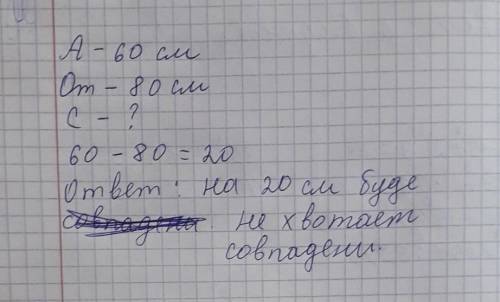 А - 60 см
От - 80 см
С - ?
60 - 80 = 20
Ответ: на 20 см буде
совпадени. не хвотает
совпадени.